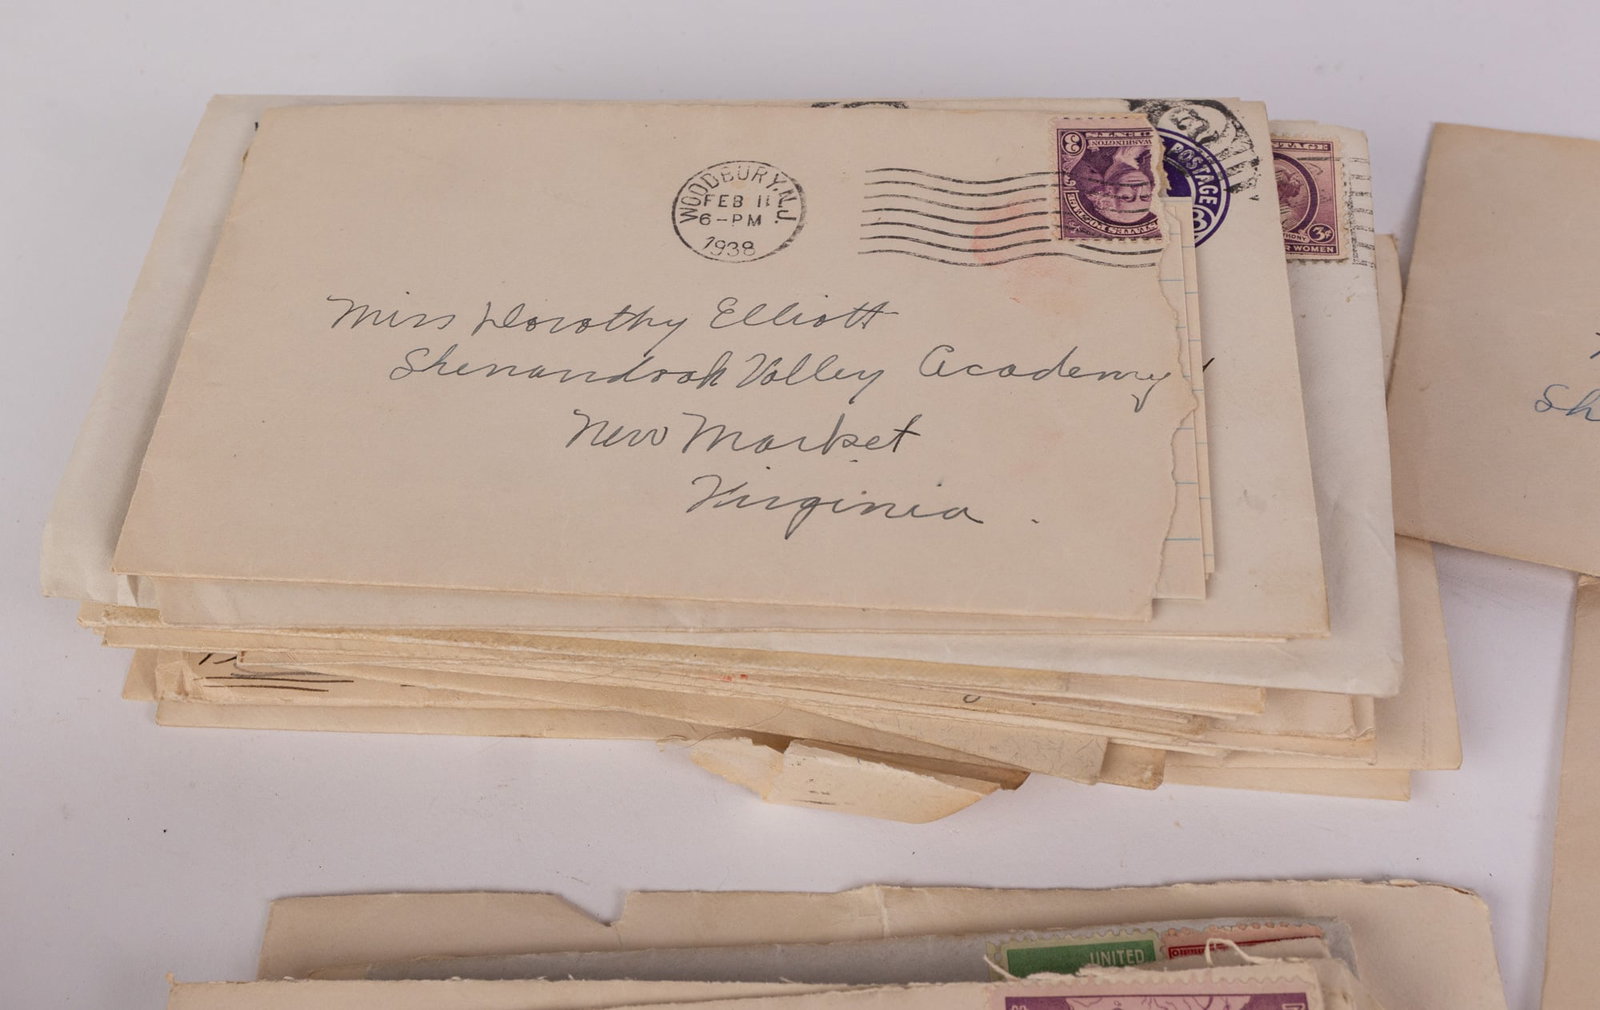 WOODBURY, N.J.
FEB 11
6-PM
1938
3
WASHINGTON
STATES POSTAGE
POSTAGE
3¢
WOMEN
Miss Dorothy Elliott
Shenandoah Valley Academy
New Market
Virginia.
Sh
UNITED